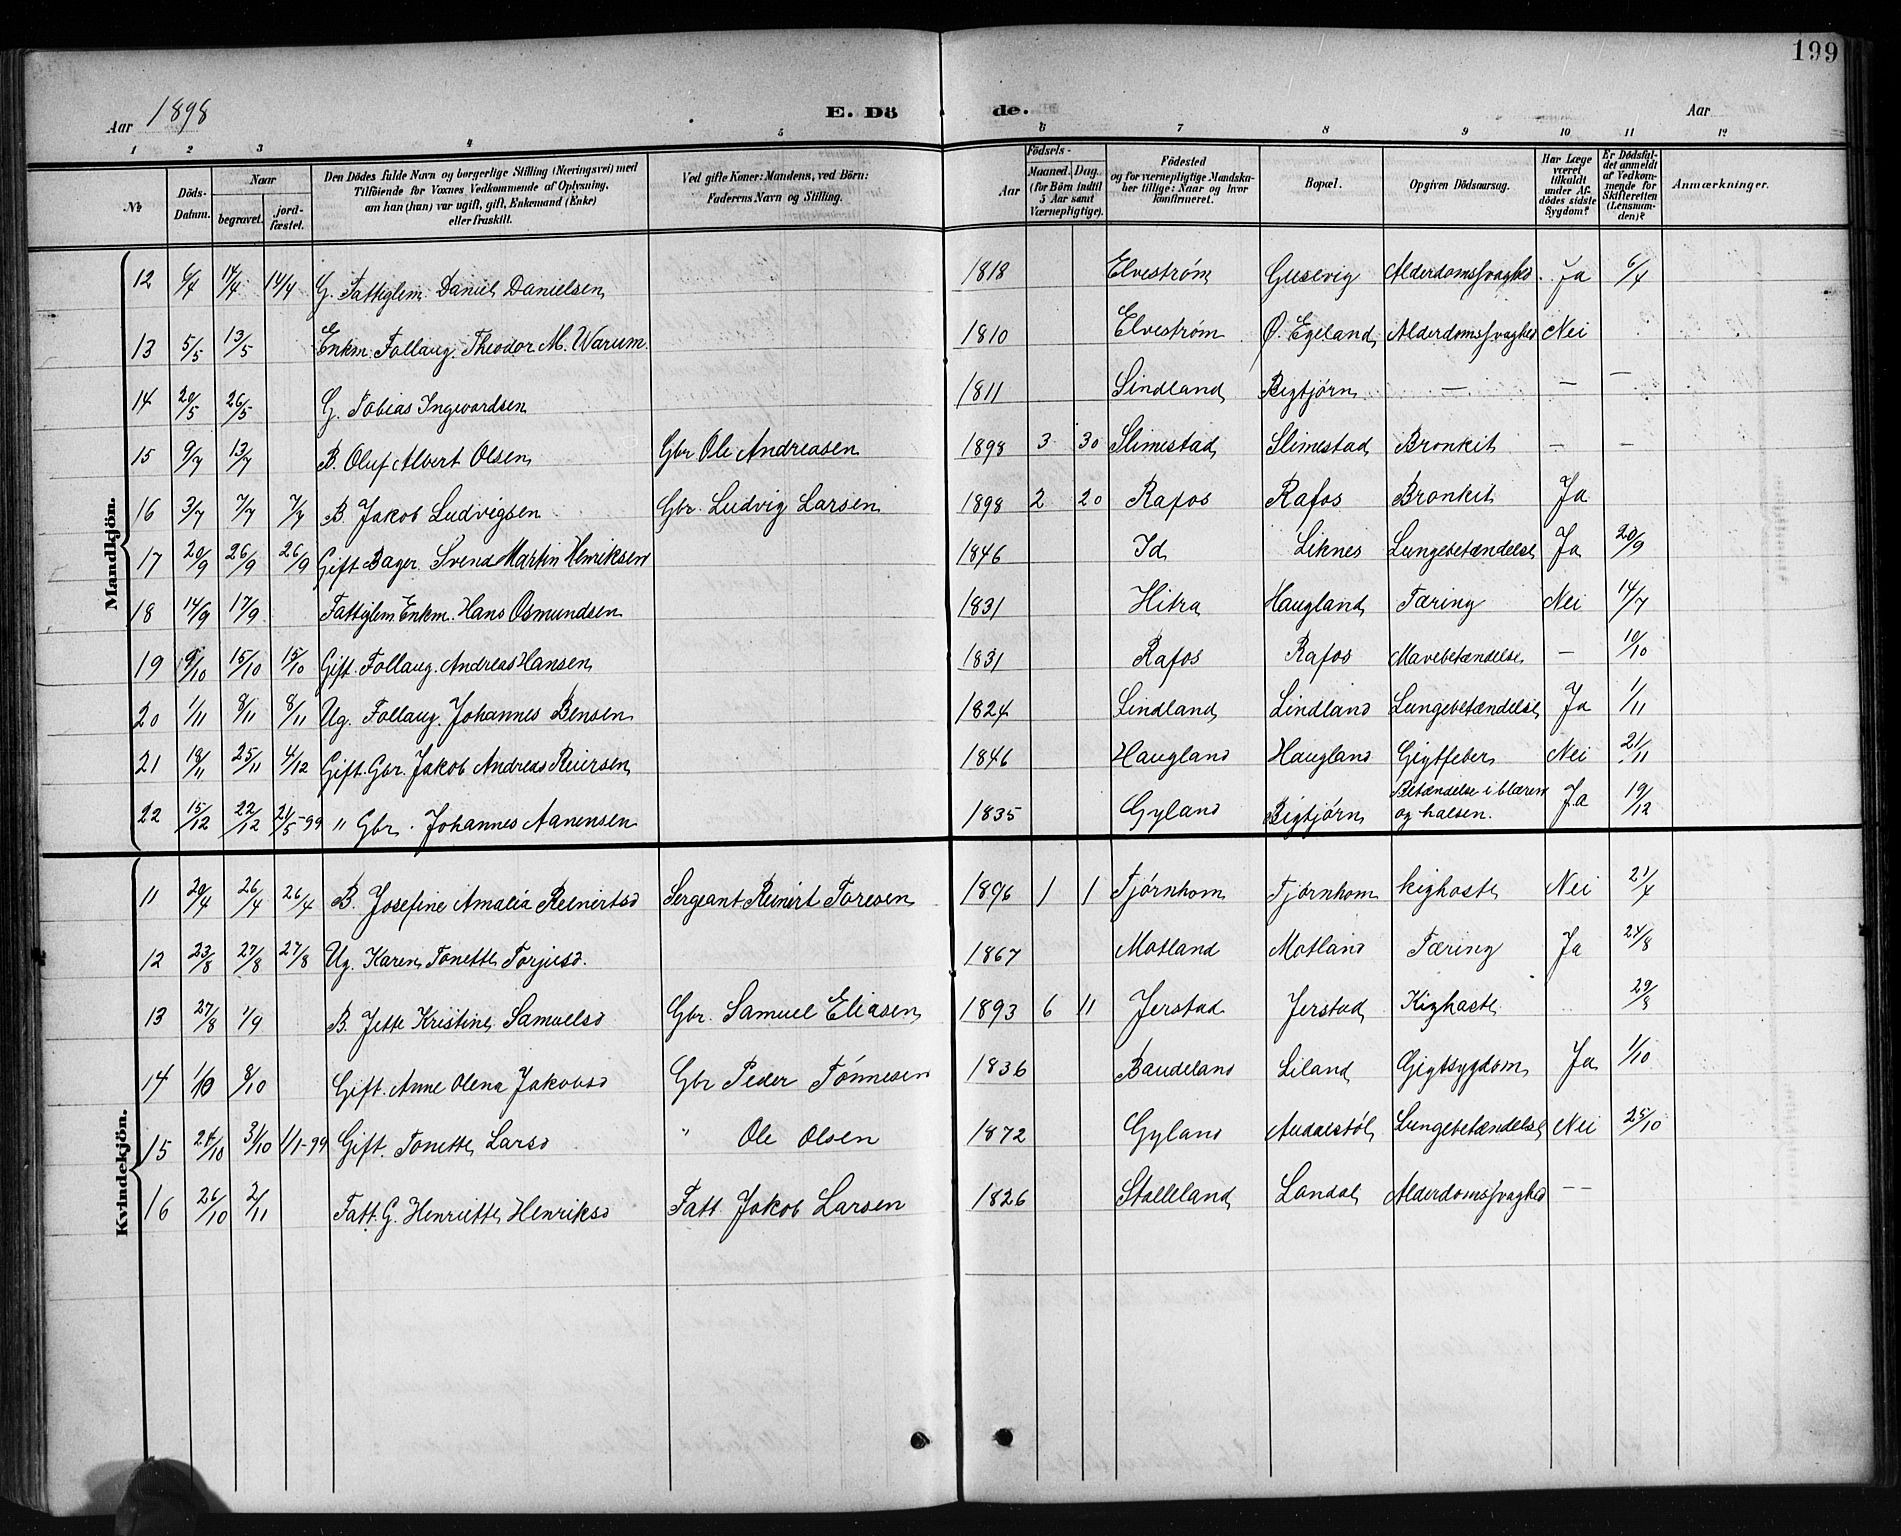 199
Aar 1898 E. Dö de. Aar
1 2 3 4 5 6 7 8 9 10 11 12
№ Döds-Datum. Naar begravet. jord-fæstet. Den Dödes fulde Navn og borgerlige Stilling (Næringsvei) med Tilföiende for Voxnes Vedkommende af Oplysning, om han (hun) var ugift, gift, Enkemand (Enke) eller fraskilt. Ved gifte Koner: Mandens, ved Börn: Faderens Navn og Stilling. Födsels- Aar Maaned. Dag. (for Börn indtil 5 Aar samt Værnepligtige). Födested og for værnepligtige Mandskaber tillige: Naar og hvor konfirmeret. Bopæl. Opgiven Dödsaarsag. Har Læge været tilkaldt under Afdödes sidste Sygdom? Er Dödsfaldet anmeldt af Vedkommende for Skifteretten (Lensmanden)? Anmærkninger.
Mandkjön.
12 6/4 14/4 14/4 G. Fattiglem Daniel Danielsen 1818 Elvestrøm Gusevig Alderdomssvaghed Ja 6/4
13 5/5 13/5 Enkm. Follaug Theodor M. Warum 1810 Elvestrøm Ø. Egeland Alderdomssvaghed Nei
14 20/5 26/5 G. Tobias Ingwardsen 1811 Lindland Bigtjørn — — —
15 9/7 13/7 B. Oluf Albert Olsen Gbr Ole Andreasen 1898 3 30 Slimestad Slimestad Bronkit — —
16 3/7 7/7 7/7 B. Jakob Ludvigsen Gbr. Ludvig Larsen 1898 2 20 Rafos Rafos Bronkit Ja
17 20/9 26/9 26/9 Gift Bager Svend Martin Henriksen 1846 Id Liknes Lungebetændelse Ja 20/9
18 14/9 17/9 Fattiglem Enkm. Hans Osmundsen 1831 Hitra Haugland Tæring Nei 14/7
19 9/10 15/10 15/10 Gift Follaug. Andreas Hansen 1831 Rafos Rafos Mavebetændelse — 10/10
20 1/11 8/11 8/11 Ug. Follaug Johannes Bensen 1824 Lindland Lindland Lungebetændelse Ja 1/11
21 18/11 25/11 4/12 Gift Gbr. Jakob Andreas Reiersen 1846 Haugland Haugland Gigtfeber Nei 21/11
22 15/12 22/12 21/5-99 " Gbr. Johannes Aanensen 1835 Gyland Bigtjørn Betændelse i blæren og halsen. Ja 19/12
Kvindekjön.
11 20/4 26/4 26/4 B. Josefine Amalia Reinertsd Sergeant Reinert Toresen 1896 1 1 Tjørnhom Tjørnhom kighoste Nei 21/4
12 23/8 27/8 27/8 Ug. Karen Tonette Torjusd. 1867 Motland Motland Tæring Ja 24/8
13 27/8 1/9 B. Jette Kristine Samuelsd Gbr. Samuel Eliasen 1893 6 11 Jerstad Jerstad Kighoste 29/8
14 1/10 8/10 Gift Anne Olena Jakobsd Gbr Peder Tønnesen 1836 Baudeland Liland Gigtsygdom Ja 1/10
15 24/10 31/10 1/1-99 Gift. Tonette Larsd " Ole Olsen 1872 Gyland Audalstøl Lungebetændelse Nei 25/10
16 26/10 2/11 Fatt. G. Henriette Henriksd Fatt. Jakob Larsen 1826 Stalleland Londal Alderdomssvaghed — —